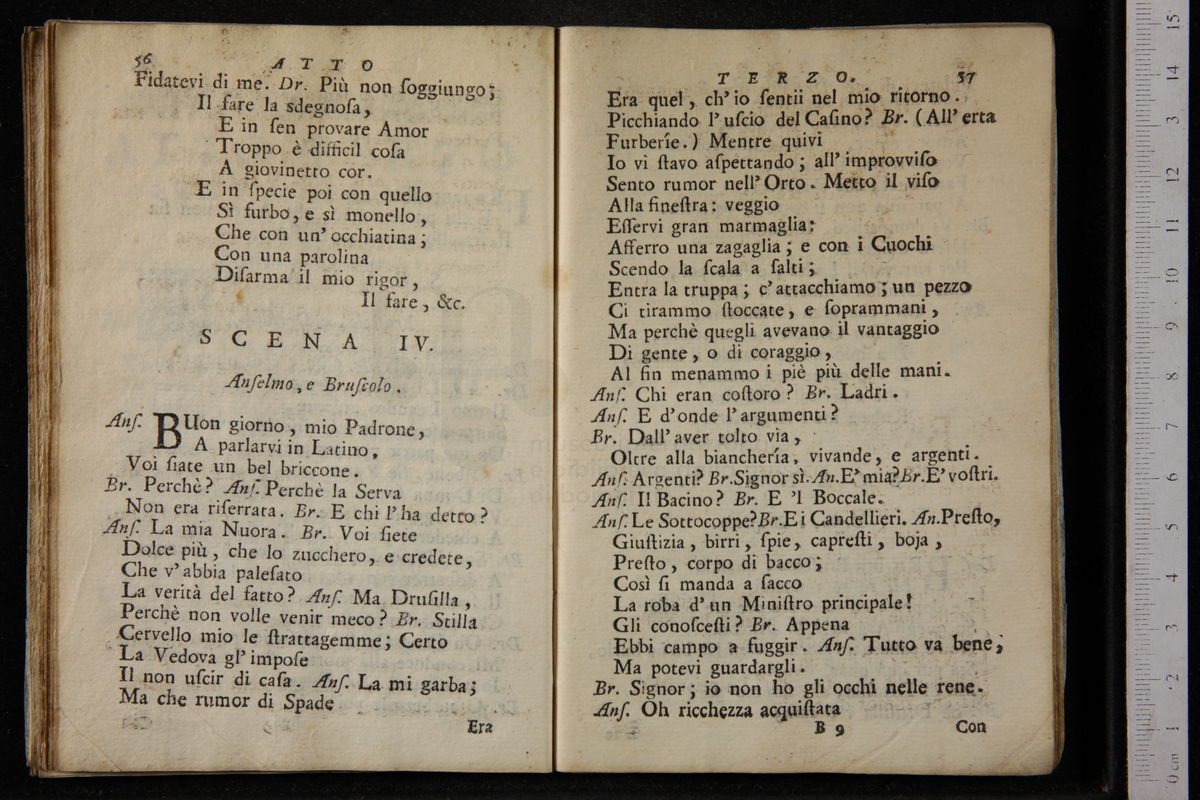 56 ATTO
Fidatevi di me. Dr. Più non ſoggiungo;
Il fare la sdegnoſa,
E in ſen provare Amor
Troppo è difficil coſa
A giovinetto cor.
E in ſpecie poi con quello
Sì furbo, e sì monello,
Che con un' occhiatina;
Con una parolina
Diſarma il mio rigor,
Il fare, &c.
SCENA IV.
Anſelmo, e Bruſcolo.
Anſ. BUon giorno, mio Padrone,
A parlarvi in Latino,
Voi ſiate un bel briccone.
Br. Perchè? Anſ. Perchè la Serva
Non era riſerrata. Br. E chi l'ha detto?
Anſ. La mia Nuora. Br. Voi ſiete
Dolce più, che lo zucchero, e credete,
Che v'abbia paleſato
La verità del fatto? Anſ. Ma Druſilla,
Perchè non volle venir meco? Br. Stilla
Cervello mio le ſtrattagemme; Certo
La Vedova gl'impoſe
Il non uſcir di caſa. Anſ. La mi garba;
Ma che rumor di Spade
Era
TERZO. 57
Era quel, ch'io ſentii nel mio ritorno.
Picchiando l'uſcio del Caſino? Br. (All'erta
Furberíe.) Mentre quivi
Io vi ſtavo aſpettando; all'improvviſo
Sento rumor nell'Orto. Metto il viſo
Alla fineſtra: veggio
Eſſervi gran marmaglia:
Afferro una zagaglia; e con i Cuochi
Scendo la ſcala a ſalti;
Entra la truppa; c'attacchiamo; un pezzo
Ci tirammo ſtoccate, e ſoprammani,
Ma perchè quegli avevano il vantaggio
Di gente, o di coraggio,
Al fin menammo i piè più delle mani.
Anſ. Chi eran coſtoro? Br. Ladri.
Anſ. E d'onde l'argumenti?
Br. Dall'aver tolto via,
Oltre alla bianchería, vivande, e argenti.
Anſ. Argenti? Br. Signor sì. An. E' mia? Br. E' voſtri.
Anſ. Il Bacino? Br. E 'l Boccale.
Anſ. Le Sottocoppe? Br. E i Candellieri. An. Preſto,
Giuſtizia, birri, ſpie, capreſti, boja,
Preſto, corpo di bacco;
Così ſi manda a ſacco
La roba d'un Miniſtro principale!
Gli conoſceſti? Br. Appena
Ebbi campo a fuggir. Anſ. Tutto va bene,
Ma potevi guardargli.
Br. Signor; io non ho gli occhi nelle rene.
Anſ. Oh ricchezza acquiſtata
B 9 Con
15
14
13
12
11
10
9
8
7
6
5
4
3
2
1
0 cm